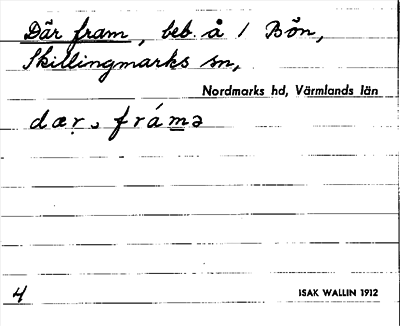 Där fram, beb. å 1 Bön,
Skillingmarks sn,
Nordmarks hd, Värmlands län
dær. fráma
4
ISAK WALLIN 1912